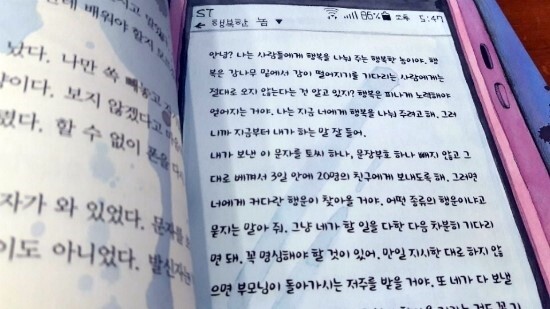 지고 땀
데 배워야 할지 모르
났다. 나만 쏙 빼놓고
이다. 보지 않겠다고
렸다. 할 수 없이 폰을
자가 와 있었다. 문자를
이도 아니었다. 발신자
ST 86% 오후 5:47
← 행복한 놈 ▼
안녕? 나는 사람들에게 행복을 나눠 주는 행복한 놈이야. 행
복은 감나무 밑에서 감이 떨어지기를 기다리는 사람에게는
절대로 오지 않는다는 건 알고 있지? 행복은 피나게 노력해야
얻어지는 거야. 나는 지금 너에게 행복을 나눠 주려고 해. 그러
니까 지금부터 내가 하는 말 잘 들어.
내가 보낸 이 문자를 토씨 하나, 문장부호 하나 빼지 않고 그
대로 베껴서 3일 안에 20명의 친구에게 보내도록 해. 그러면
너에게 커다란 행운이 찾아올 거야. 어떤 종류의 행운이냐고
묻지는 말아 줘. 그냥 네가 할 일을 다한 다음 차분히 기다리
면 돼. 꼭 명심해야 할 것이 있어. 만일 지시한 대로 하지 않
으면 부모님이 돌아가시는 저주를 받을 거야. 또 네가 다 보낼